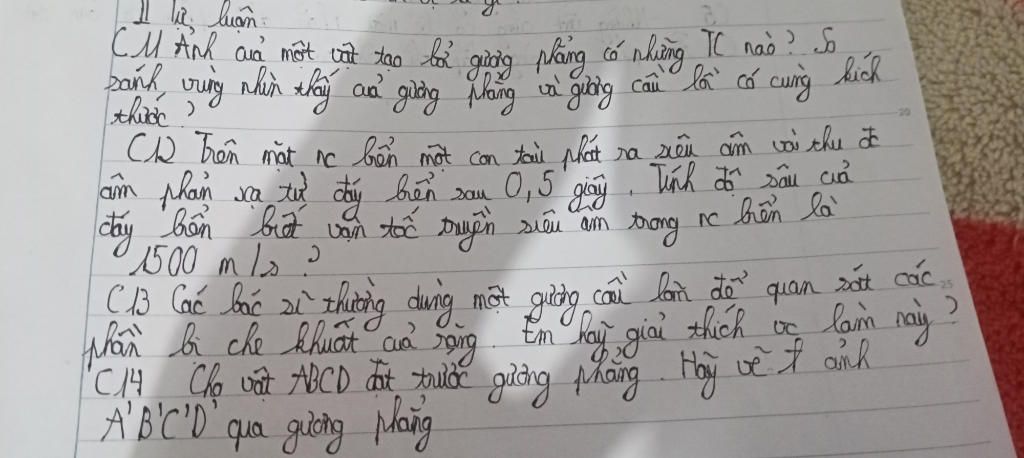 II Tự luận
C11 Ảnh của một vật tạo bởi gương phẳng có những TC nào? So
sánh vùng nhìn thấy của gương phẳng và gương cầu lồi có cùng kích
thước?
C12 Trên mặt nc biển một con tàu phát ra siêu âm và thu đc
âm phản xạ từ đáy biển sau 0,5 giây. Tính độ sâu của
đáy biển biết vận tốc truyền siêu âm trong nc biển là
1500 m/s?
C13 Các bác sĩ thường dùng một gương cầu lõm để quan sát các
phần bị che khuất của răng. Em hãy giải thích vc làm này?
C14 Cho vật ABCD đặt trước gương phẳng. Hãy vẽ ảnh
A'B'C'D' qua gương phẳng